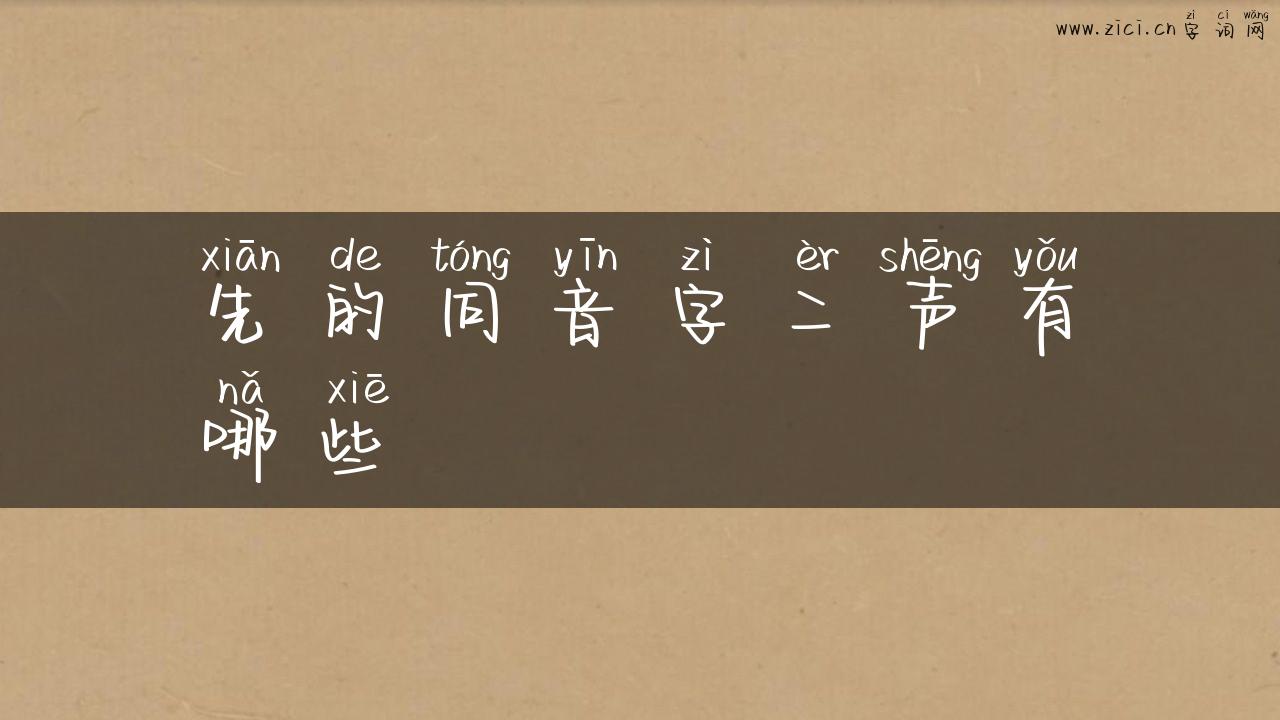 zì cí wǎng
www.zici.cn 字 词 网
xiān de tóng yīn zì èr shēng yǒu
先 的 同 音 字 二 声 有
nǎ xiē
哪 些